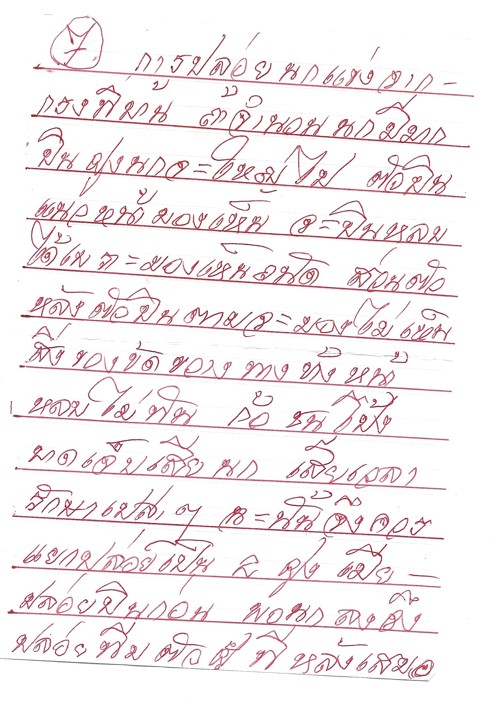 7 การปล่อยนกแข่งจาก-
กรงที่บ้าน ถ้าจำนวนนกมีมาก
บินฝูงนกจะใหญ่ไป ตัวบิน
แนวหน้ามองเห็น จะบินหลบ
ได้เพราะมองเห็นถนัด ส่วนตัว
หลังตัวบินตามจะมองไม่เห็น
สิ่งของขัดขวางทางข้างหน้า
หลบไม่ทัน ก็ชนปีกหัก
บาดเจ็บเสียนก เสียเวลา
รักษาเปล่าๆ ฉะนั้นจึงควร
แยกปล่อยเป็น ๒ ฝูง เมีย-
ปล่อยบินก่อน พอนกลงถึง
ปล่อยทีมตัวผู้ทีหลังเสมอ